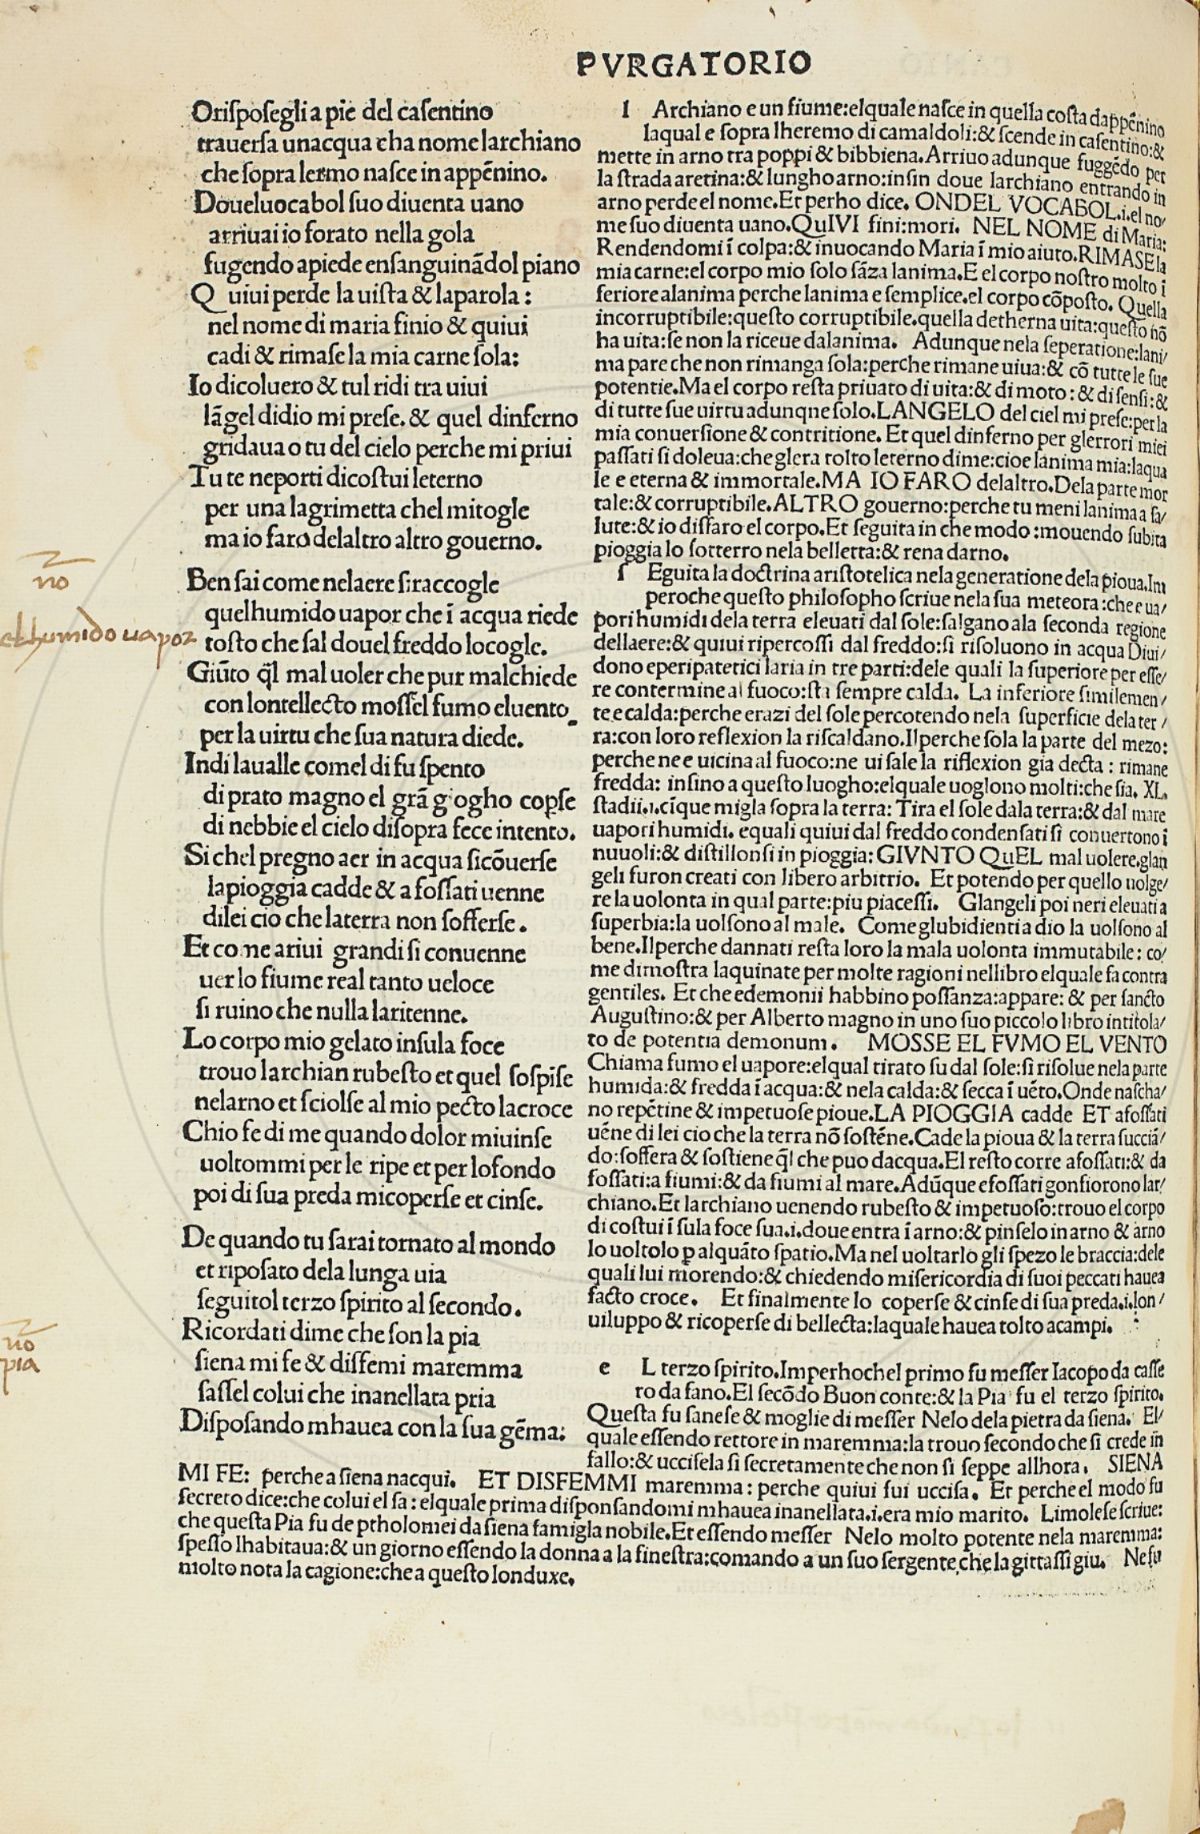 PVRGATORIO
Oriſpoſegli a pie del caſentino
trauerſa unacqua cha nome larchiano
che ſopra lermo naſce in appēnino.
Doueluocabol ſuo diuenta uano
arriuai io forato nella gola
fugendo apiede enſanguinādol piano
Q uiui perde la uiſta & laparola :
nel nome di maria finio & quiui
cadi & rimaſe la mia carne ſola:
Io dicoluero & tul ridi tra uiui
lāgel didio mi preſe. & quel dinferno
gridaua o tu del cielo perche mi priui
Tu te neporti dicoſtui leterno
per una lagrimetta chel mitogle
ma io faro delaltro altro gouerno.
Ben ſai come nelaere ſiraccogle
quelhumido uapor che ī acqua riede
toſto che ſal douel freddo locogle.
Giūto q̄l mal uoler che pur malchiede
con lontellecto moſſel fumo eluento
per la uirtu che ſua natura diede.
Indi laualle comel di fu ſpento
di prato magno el grā giogho coꝑſe
di nebbie el cielo diſopra fece intento.
Si chel pregno aer in acqua ſicōuerſe
lapioggia cadde & a foſſati uenne
dilei cio che laterra non ſofferſe.
Et come ariui grandi ſi conuenne
uer lo fiume real tanto ueloce
ſi ruino che nulla laritenne.
Lo corpo mio gelato inſula foce
trouo larchian rubeſto et quel ſospiſe
nelarno et ſciolſe al mio pecto lacroce
Chio fe di me quando dolor miuinſe
uoltommi per le ripe et per lofondo
poi di ſua preda micoperſe et cinſe.
De quando tu ſarai tornato al mondo
et ripoſato dela lunga uia
ſeguitol terzo ſpirito al ſecondo.
Ricordati dime che ſon la pia
ſiena mi fe & diſfemi maremma
ſaſſel colui che inanellata pria
Diſpoſando mhauea con la ſua gēma:
no
el humido uapor
no
pia
l Archiano e un fiume:elquale naſce in quella coſta dappēnino
laqual e ſopra lheremo di camaldoli:& ſcende in caſentino:&
mette in arno tra poppi & bibbiena. Arriuo adunque fuggēdo per
la ſtrada aretina:& lungho arno:inſin doue larchiano entrando in
arno perde el nome. Et perho dice. ONDEL VOCABOL.i.el no/
me ſuo diuenta uano. QuIVI fini:mori. NEL NOME di Maria:
Rendendomi ī colpa:& inuocando Maria ī mio aiuto. RIMASE la
mia carne:el corpo mio ſolo ſāza lanima. E el corpo noſtro molto ī
feriore alanima perche lanima e ſemplice.el corpo cōpoſto. Quella
incorruptibile:queſto corruptibile.quella detherna uita:queſto nō
ha uita:ſe non la riceue dalanima. Adunque nela ſeperatione:lani/
ma pare che non rimanga ſola:perche rimane uiua:& cō tutte le ſue
potentie. Ma el corpo reſta priuato di uita:& di moto: & di ſenſi:&
di tutte ſue uirtu adunqne ſolo. LANGELO del ciel mi preſe:per la
mia conuerſione & contritione. Et quel dinferno per glerrori miei
paſſati ſi doleua:che glera tolto leterno dime:cioe lanima mia:laqua
le e eterna & immortale. MA IO FARO delaltro. Dela parte mor
tale:& corruptibile. ALTRO gouerno:perche tu meni lanima a ſa/
lute:& io disfaro el corpo. Et ſeguita in che modo :mouendo ſubita
pioggia lo ſotterro nela belletta:& rena darno.
ſ Eguita la doctrina ariſtotelica nela generatione dela pioua. Im
peroche queſto philoſopho ſcriue nela ſua meteora :che e ua/
pori humidi dela terra eleuati dal ſole:ſalgano ala ſeconda regione
dellaere:& quiui ripercoſſi dal freddo:ſi riſoluono in acqua Diui/
dono eperipatetici laria in tre parti:dele quali la ſuperiore per eſſe/
re contermine al fuoco:ſta ſempre calda. La inferiore ſimilemen/
te e calda:perche erazi del ſole percotendo nela ſuperficie dela ter /
ra:con loro reflexion la riſcaldano. Il perche ſola la parte del mezo:
perche ne e uicina al fuoco:ne ui ſale la riflexion gia decta : rimane
fredda: inſino a queſto luogho:elquale uoglono molti:che ſia. XL.
ſtadii.i.cīque migla ſopra la terra: Tira el ſole dala terra:& dal mare
uapori humidi. equali quiui dal freddo condenſati ſi conuertono ī
nuuoli:& diſtillonſi in pioggia: GIVNTO QuEL mal uolere.glan
geli furon creati con libero arbitrio. Et potendo per quello uolge/
re la uolonta in qual parte:piu piaceſſi. Glangeli poi neri eleuati a
ſuperbia:la uolſono al male. Come glubidienti a dio la uolſono al
bene. Il perche dannati reſta loro la mala uolonta immutabile : co/
me dimoſtra laquinate per molte ragioni nellibro elquale fa contra
gentiles. Et che edemonii habbino poſſanza:appare: & per ſancto
Auguſtino:& per Alberto magno in uno ſuo piccolo libro intitola/
to de potentia demonum. MOSSE EL FVMO EL VENTO
Chiama fumo el uapore:elqual tirato ſu dal ſole:ſi riſolue nela parte
humida:& fredda ī acqua:& nela calda:& ſecca ī uēto. Onde naſcha/
no repētine & impetuoſe pioue. LA PIOGGIA cadde ET afoſſati
uēne di lei cio che la terra nō ſoſtēne. Cade la pioua & la terra ſucciā/
do:ſoffera & ſoſtiene q̄l che puo dacqua. El reſto corre afoſſati:& da
foſſati:a fiumi:& da fiumi al mare. Adūque efoſſati gonfiorono lar/
chiano. Et larchiano uenendo rubeſto & impetuoſo:trouo el corpo
di coſtui ī ſula foce ſua.i.doue entra ī arno:& pinſelo in arno & arno
lo uoltolo ꝑ alquāto ſpatio. Ma nel uoltarlo gli ſpezo le braccia:dele
quali lui morendo:& chiedendo miſericordia di ſuoi peccati hauea
facto croce. Et finalmente lo coperſe & cinſe di ſua preda.i.lon/
uiluppo & ricoperſe di bellecta:laquale hauea tolto acampi.
e L terzo ſpirito. Imperhochel primo fu meſſer Iacopo da caſſe
ro da fano. El ſecōdo Buon conte:& la Pia fu el terzo ſpirito.
Queſta fu ſaneſe & moglie di meſſer Neſo dela pietra da ſiena. El/
quale eſſendo rettore in maremma:la trouo ſecondo che ſi crede in
fallo:& ucciſela ſi ſecretamente che non ſi ſeppe allhora. SIENA
MI FE: perche a ſiena nacqui. ET DISFEMMI maremma : perche quiui fui ucciſa. Et perche el modo fu
ſecreto dice:che colui el ſa : elquale prima diſponſandomi mhauea inanellata.i.era mio marito. Limoleſe ſcriue:
che queſta Pia fu de ptholomei da ſiena famigla nobile. Et eſſendo meſſer Nelo molto potente nela maremma:
ſpeſſo lhabitaua:& un giorno eſſendo la donna a la fineſtra:comando a un ſuo ſergente che la gittaſſi giu. Ne fu
molto nota la cagione:che a queſto londuxe.